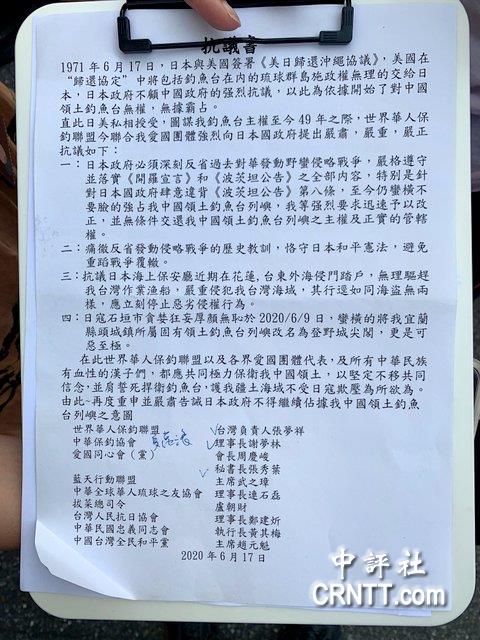 抗議書
1971年6月17日，日本與美國簽署《美日歸還沖繩協議》，美國在
“歸還協定”中將包括釣魚台在內的琉球群島施政權無理的交給日
本，日本政府不顧中國政府的强烈抗議，以此為依據開始了對中國
領土釣魚台無權，無據霸占。
直此日美私相授受，圖謀我釣魚台主權至今49年之際，世界華人保
釣聯盟今聯合我愛國團體強烈向日本國政府提出嚴肅，嚴重，嚴正
抗議如下：
一：日本政府必須深刻反省過去對華發動野蠻侵略戰爭，嚴格遵守
並落實《開羅宣言》和《波茨坦公告》之全部內容，特別是針
對日本國政府肆意違背《波茨坦公告》第八條，至今仍蠻橫不
要臉的強占我中國領土釣魚台列嶼，我等强烈要求迅速予以改
正，並無條件交還我中國領土釣魚台列嶼之主權及正實的管轄
權。
二：痛徹反省發動侵略戰爭的歷史教訓，恪守日本和平憲法，避免
重蹈戰爭覆轍。
三：抗議日本海上保安廳近期在花蓮，台東外海侵門踏戶，無理驅趕
我台灣作業漁船，嚴重侵犯我台灣海域，其行逕如同海盜無兩
樣，應立刻停止惡劣侵權行為。
四：日寇石垣市貪婪狂妄厚顏無恥於2020/6/9日，蠻橫的將我宜蘭
縣頭城鎮所屬固有領土釣魚台列嶼改名為登野城尖閣，更是可
惡至極。
在此世界華人保釣聯盟以及各界愛國團體代表，及所有中華民族
有血性的漢子們，都應共同極力保衛我中國領土，以堅定不移共同
信念，並肩誓死捍衛釣魚台，護我疆土海域不受日寇欺壓為所欲為。
由此~再度重申並嚴肅告誡日本政府不得繼續佔據我中國領土釣魚
台列嶼之意圖
世界華人保釣聯盟 台灣負責人張夢祥
中華保釣協會 理事長謝夢林
愛國同心會（黨） 會長周慶峻
秘書長張秀葉
藍天行動聯盟 主席武之璋
中華全球華人琉球之友協會 理事長連石磊
拔菜總司令 盧朝財
台灣人民抗日協會 理事長鄭建炘
中華民國忠義同志會 執行長黃其梅
中國台灣全民和平黨 主席趙元魁
2020年6月17日
中評社
CRNTT.com